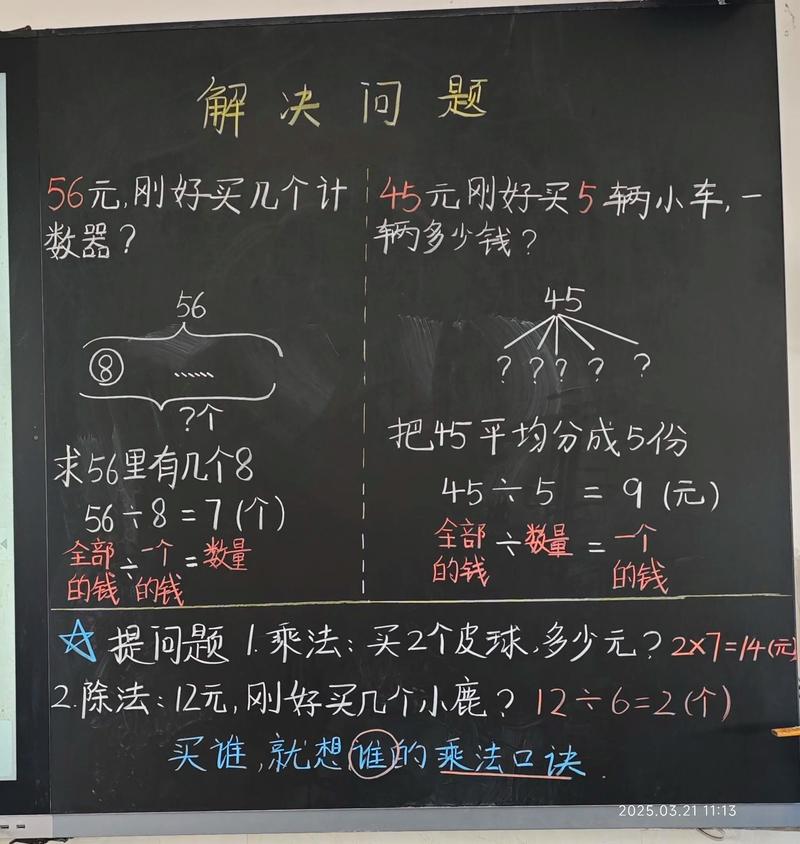 解决问题
56元,刚好买几个计
数器?
56
8 ......
?个
求56里有几个8
56÷8=7(个)
全部的钱÷一个的钱=数量
45元刚好买5辆小车,一
辆多少钱?
45
? ? ? ? ?
把45平均分成5份
45÷5=9(元)
全部的钱÷数量=一个的钱
☆提问题 1.乘法:买2个皮球,多少元? 2×7=14(元)
2.除法:12元,刚好买几个小鹿? 12÷6=2(个)
买谁,就想谁的乘法口诀.
2025.03.21 11:13